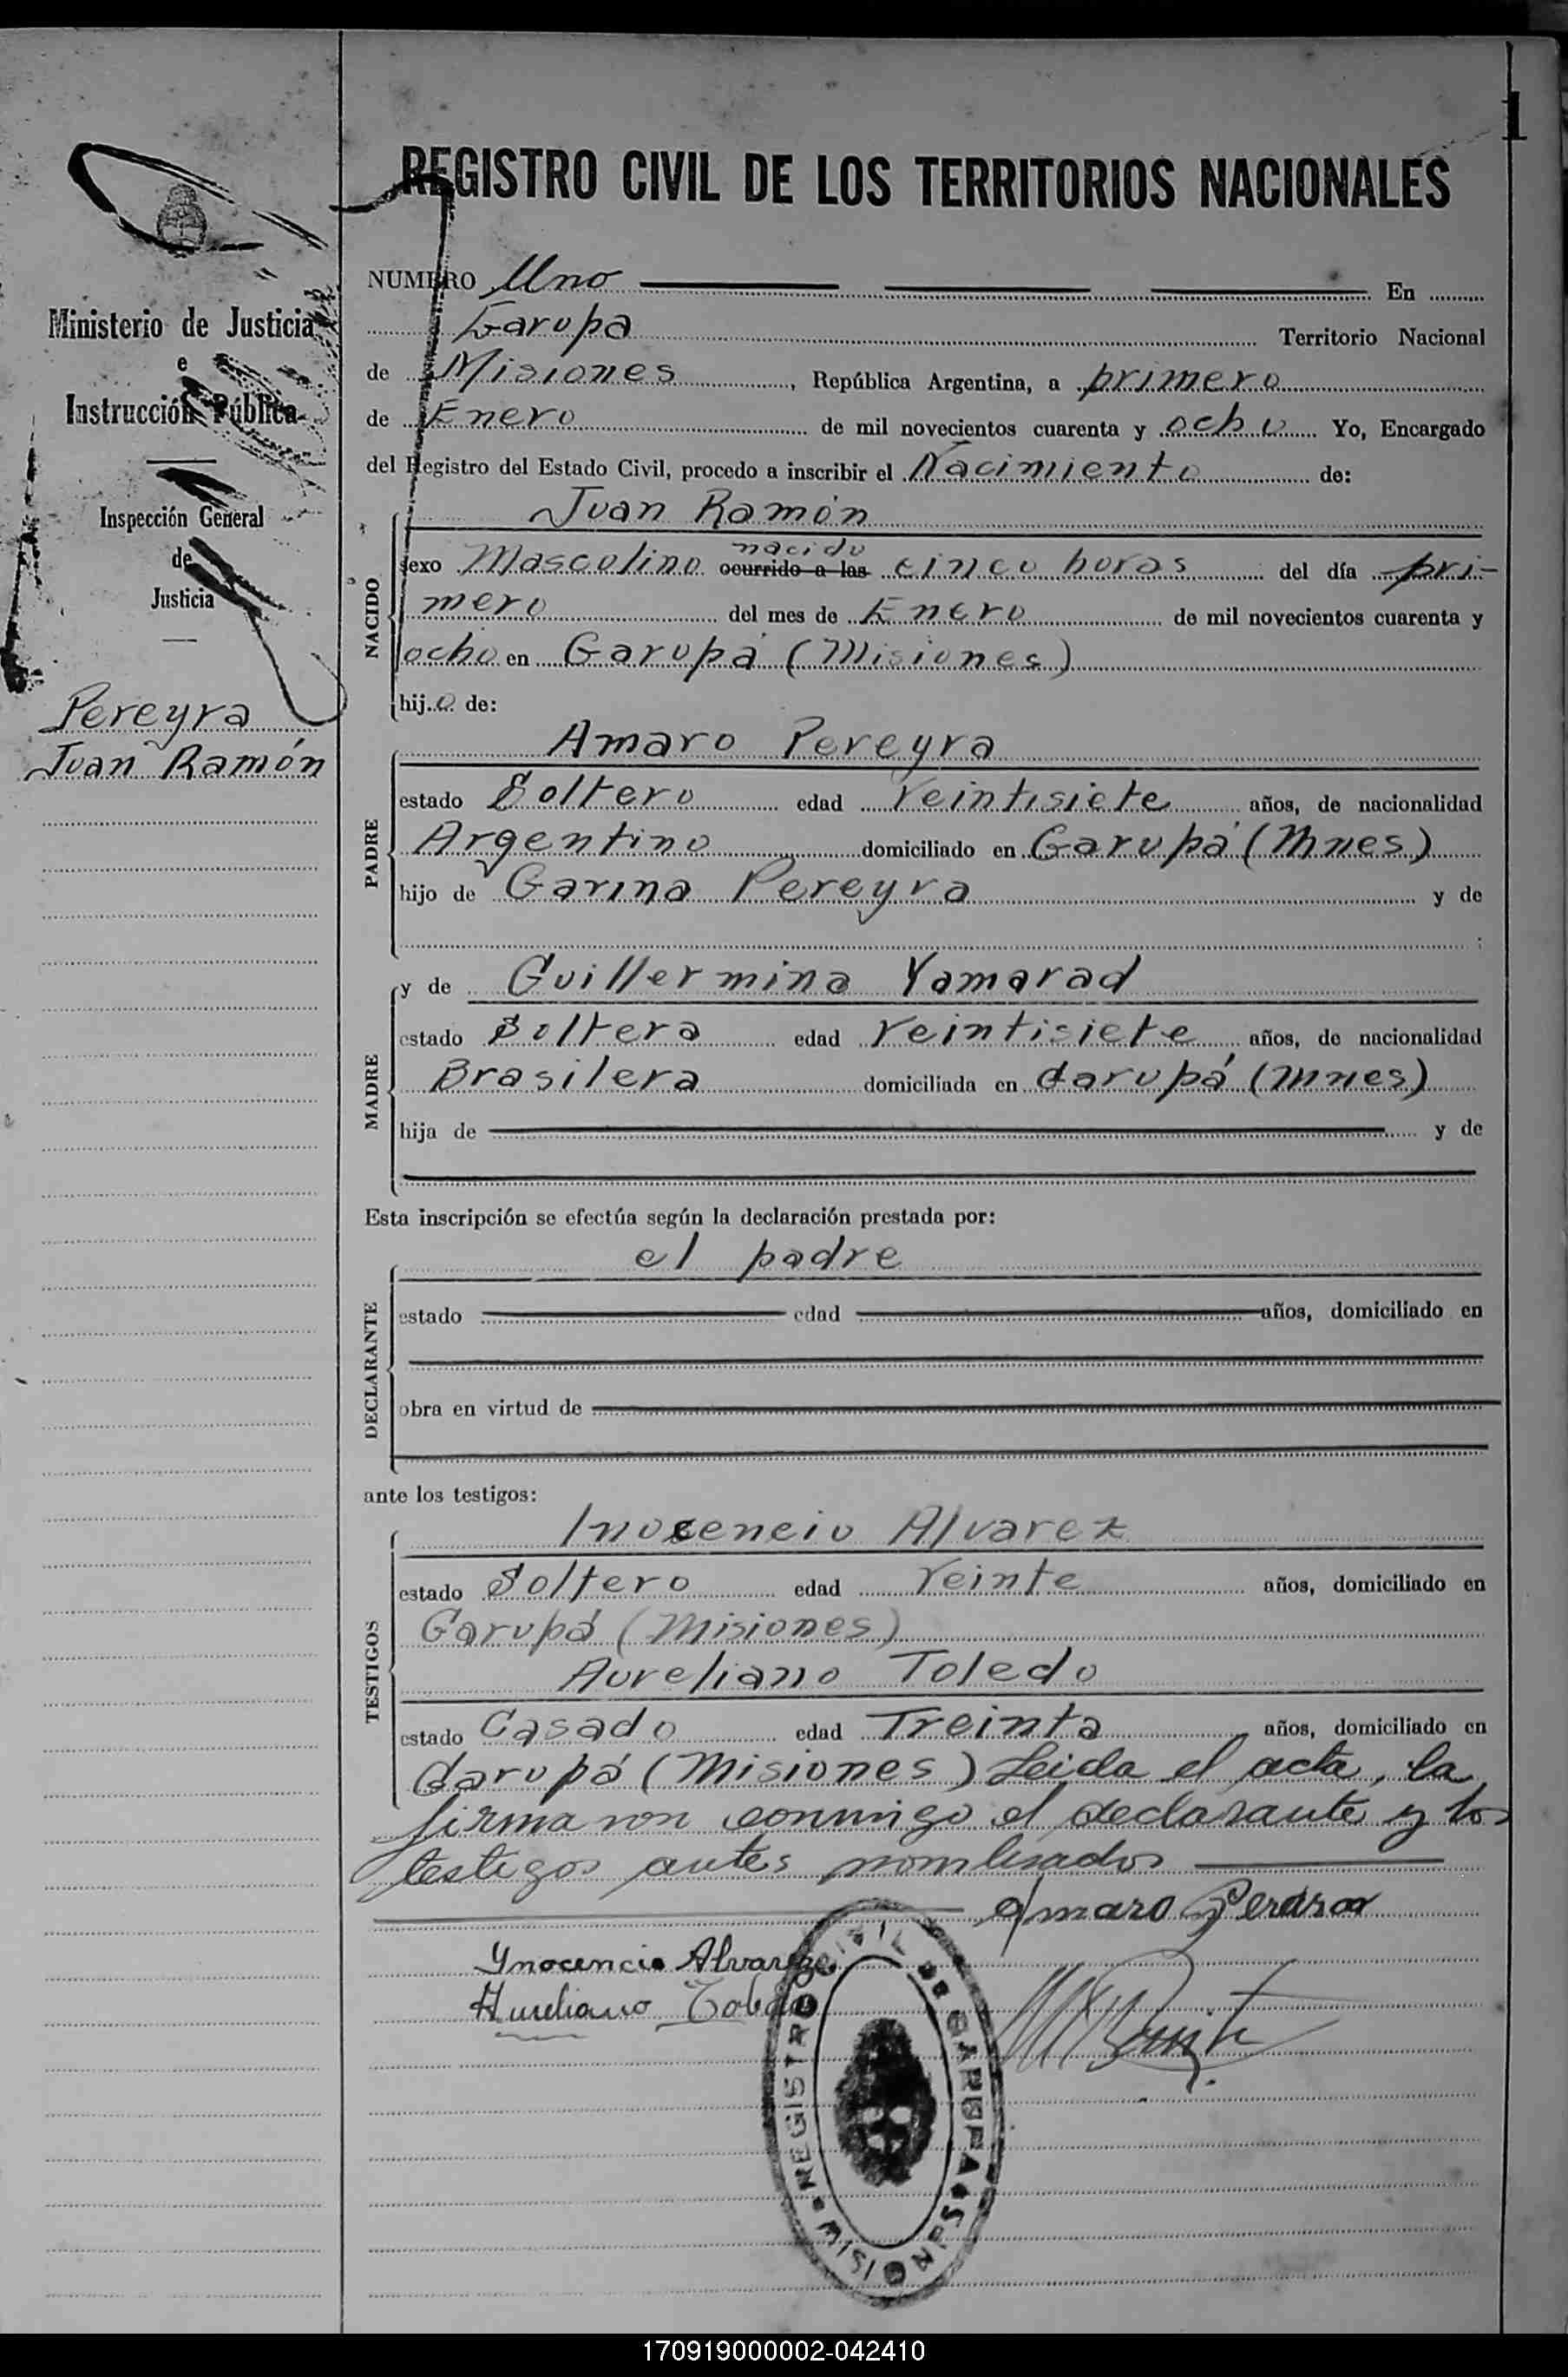 1
REGISTRO CIVIL DE LOS TERRITORIOS NACIONALES
Ministerio de Justicia
e
Instrucción Pública
Inspección General
de
Justicia
Pereyra
Juan Ramón
NUMERO Uno En
Garupa Territorio Nacional
de Misiones, República Argentina, a primero
de Enero de mil novecientos cuarenta y ocho Yo, Encargado
del Registro del Estado Civil, procedo a inscribir el Nacimiento de:
NACIDO
Juan Ramón
nacido
sexo Masculino ocurrido a las cinco horas del día pri-
mero del mes de Enero de mil novecientos cuarenta y
ocho en Garupá (Misiones)
hijo de:
PADRE
Amaro Pereyra
estado Soltero edad Veintisiete años, de nacionalidad
Argentino domiciliado en Garupá (Mnes)
hijo de Garina Pereyra y de
MADRE
y de Guillermina Yamarad
estado Soltera edad Veintisiete años, de nacionalidad
Brasilera domiciliada en Garupá (Mnes)
hija de y de
Esta inscripción se efectúa según la declaración prestada por:
DECLARANTE
el padre
estado edad años, domiciliado en
obra en virtud de
ante los testigos:
TESTIGOS
Inocencio Alvarez
estado Soltero edad Veinte años, domiciliado en
Garupá (Misiones)
Aureliano Toledo
estado Casado edad Treinta años, domiciliado en
Garupá (Misiones) Leida el acta, la
firmaron conmigo el declarante y los
testigos antes nombrados
Amaro Perdra
Ynocencio Alvarez
Aureliano Toledo
REGISTRO CIVIL DE GARUPA MISIONES
170919000002-042410